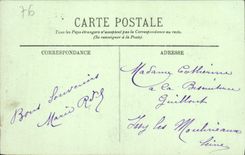 76
CARTE POSTALE
Tous les Pays étrangers n'acceptent pas la Correspondance au recto.
(Se renseigner à la Poste)
CORRESPONDANCE
ADRESSE
Bons Souvenirs
Marie
Madame Catherine
à la
Issy les Moulineaux
Seine